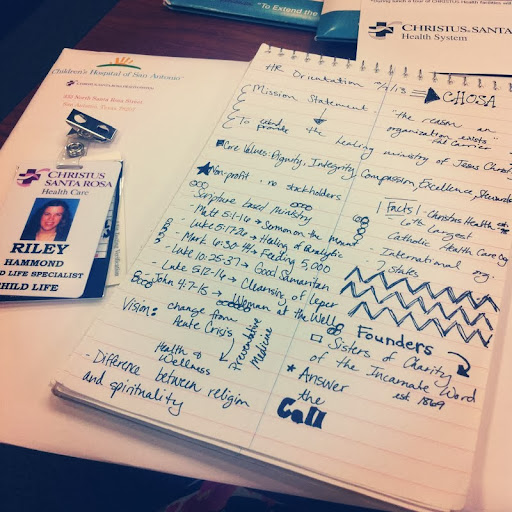 "To Extend the
CHRISTUS SANTA
Health System
Children's Hospital of San Antonio
CHRISTUS SANTA ROSA HEALTH SYSTEM
333 North Santa Rosa Street
San Antonio, Texas 78207
CHRISTUS
SANTA ROSA
Health Care
RILEY
HAMMOND
LD LIFE SPECIALIST
CHILD LIFE
HR Orientation
Mission Statement
To extend the healing ministry of Jesus Christ
provide
Core Values: Dignity, Integrity, Compassion, Excellence, Stewards
Non-profit, no stakeholders
Scripture based ministry
Matt 5:1-16 → Sermon on the Mount
Luke 5:17-26 → Healing of Paralytic
Mark 6:30-44 → Feeding 5,000
Luke 10:25-37 → Good Samaritan
Luke 5:12-16 → Cleansing of leper
John 4:7-15 → Woman at the Well
Vision: change from
Acute Crisis
Health &
Wellness
Preventative
Medicine
- Difference between religion
and spirituality
CHOSA
"the reason an
organization exists"
Facts
- Christus Health
- 6th largest
Catholic Health Care Org
- International
7 states
Founders
Sisters of Charity
of the Incarnate Word
est. 1869
Answer
the
Call